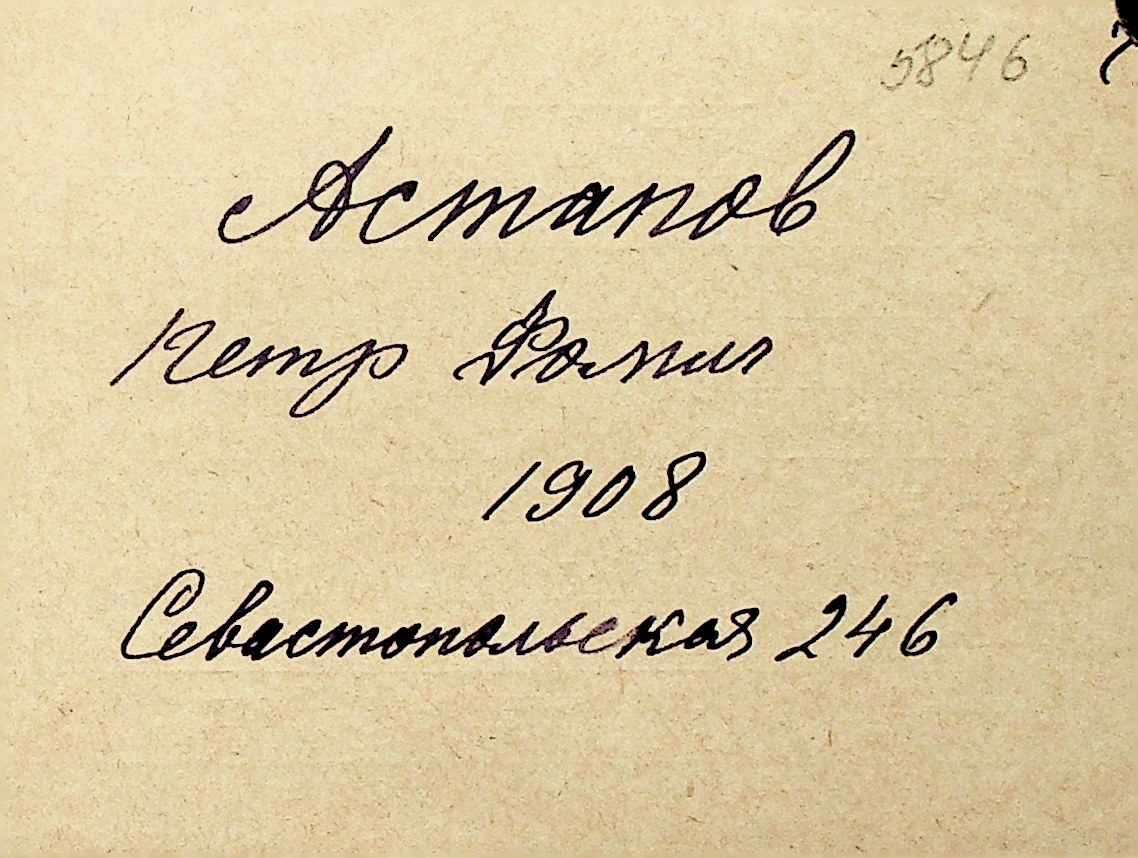 5846
Астапов
Петр Фомич
1908
Севастопольская 246